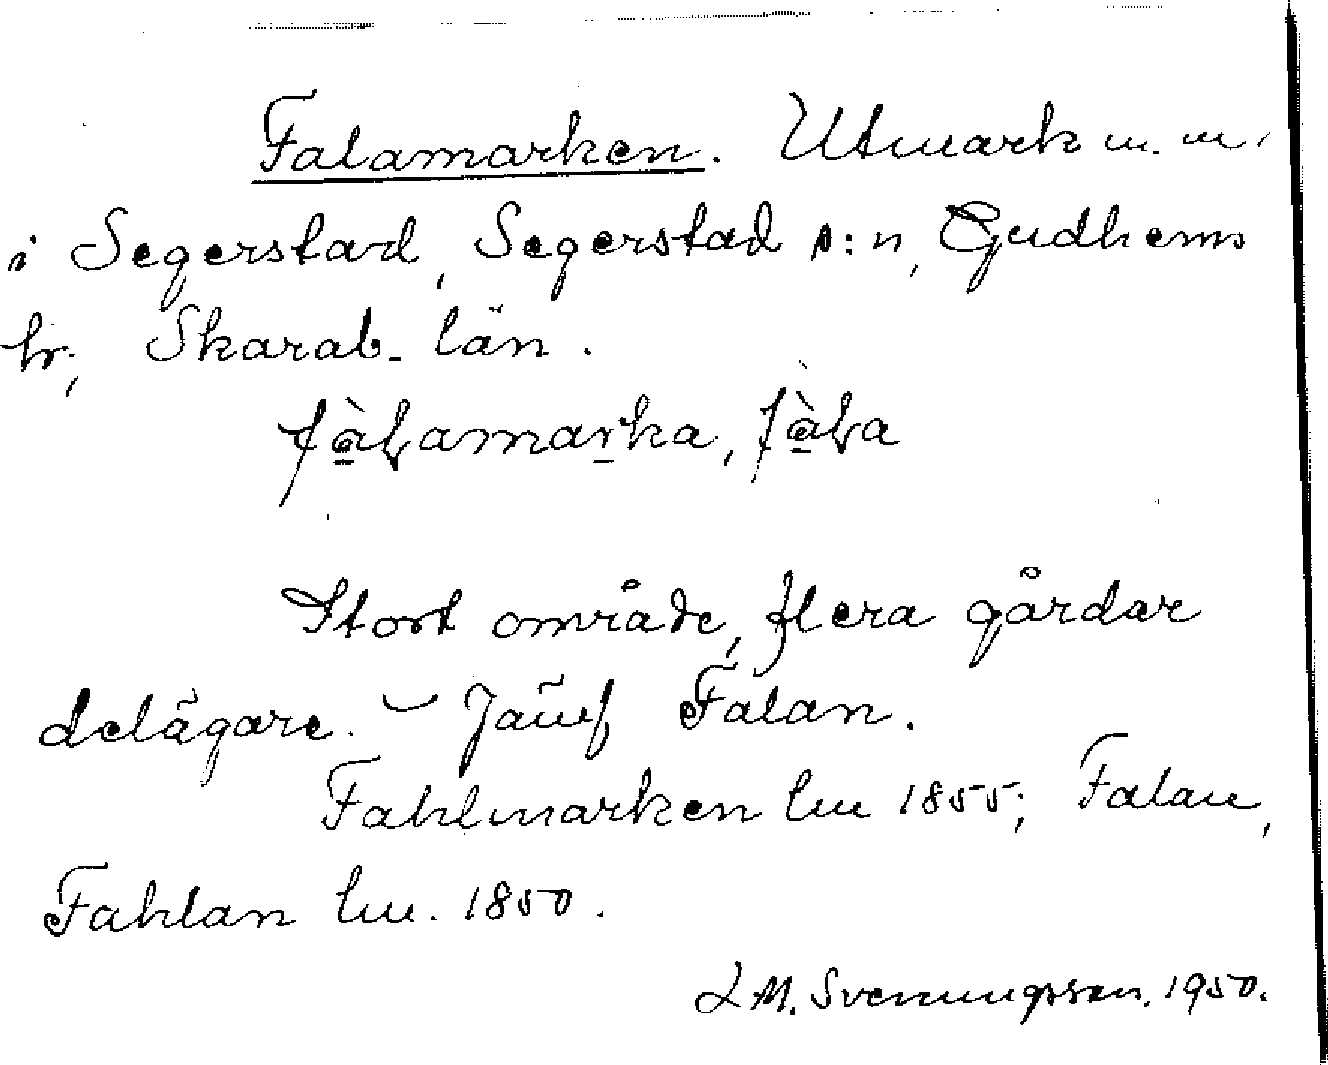 Falamarken. Utmark m. m.
i Segerstad, Segerstad s:n, Gudhems
hr, Skarab. län.
fàłamarka, fàła
Stort område, flera gårdar
delägare. – Jämf Falan.
Fahlmarken lm 1855; Falan,
Fahlan lm. 1850.
L M. Svenungsson. 1950.